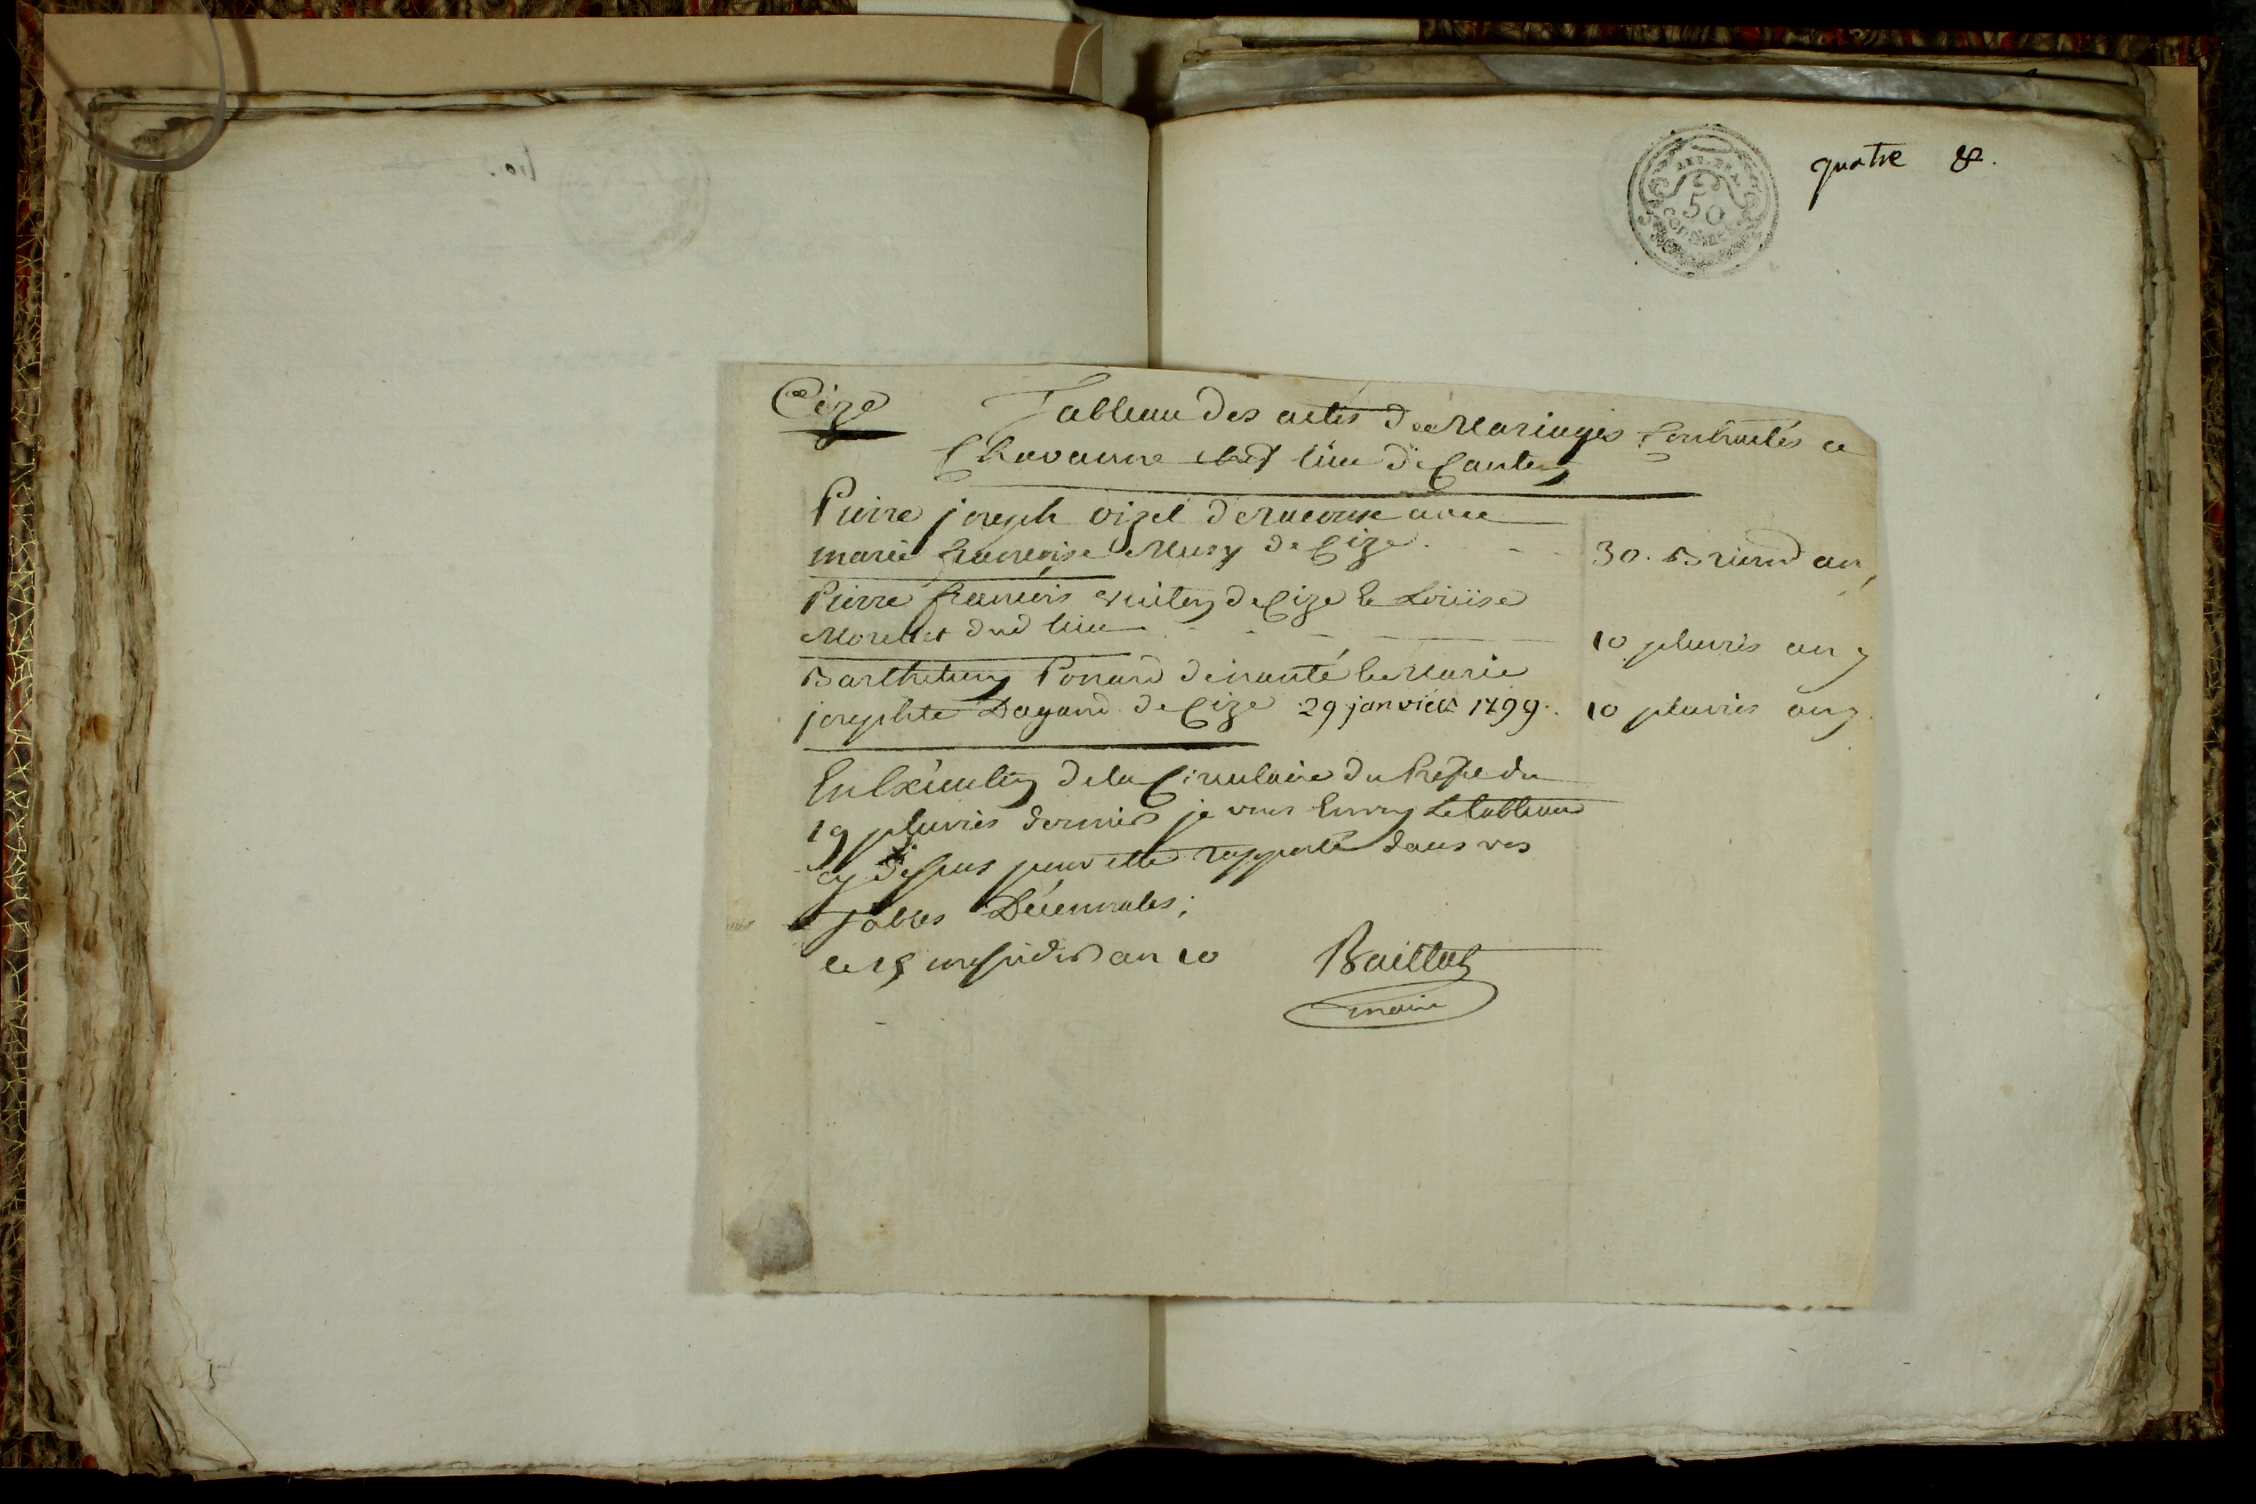 quatre &.
50
centimes
Cize
Tableau des actes de Mariages Contractés a
Chavanne chef lieu de Canton
Pierre joseph vizet de avec
marie francoise Musy de Cize.
30. Brum an
Pierre francois de Cize & Louise
Morellet dud lieu
10 pluviôs an 7
Barthelemy Ponard de nanté & Marie
josephte Dagand de Cize 29 janvier 1799.
10 pluviôs an 7
En Exécution de la Circulaire du Préfet du
19 pluviôs dernier je vous Envoy Le tableau
cy dessus pour etre rapporté dans vos
Tables Décennales;
le 15 messidor an 10
Baillat
maire